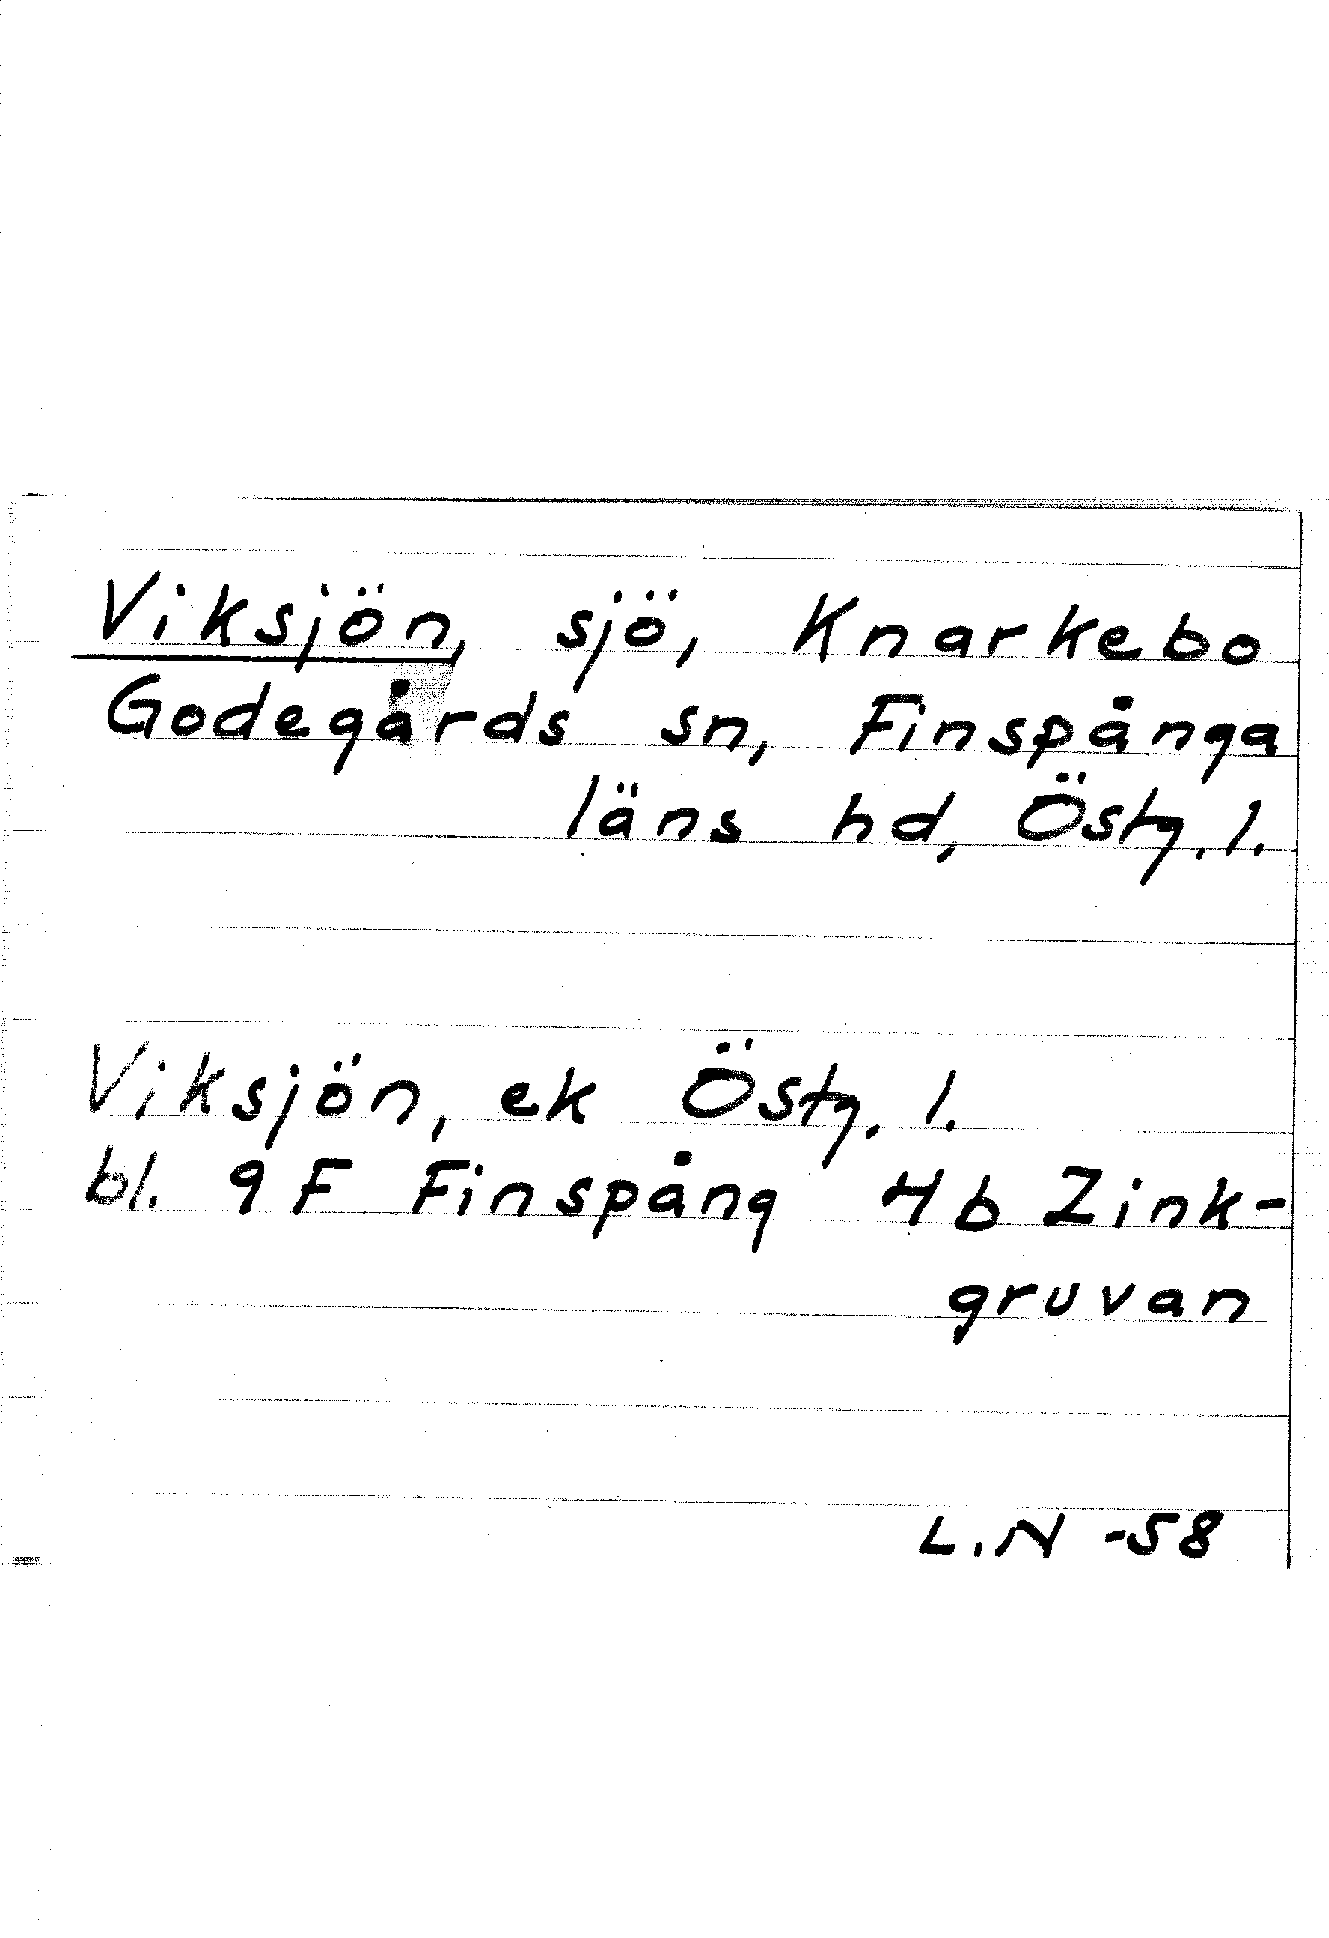 Viksjön, sjö, Knarkebo
Godegårds sn, Finspånga
läns hd, Östg. l.
Viksjön, ek Östg. l.
bl. 9 F Finspång 4b Zink-
gruvan
L.N -58